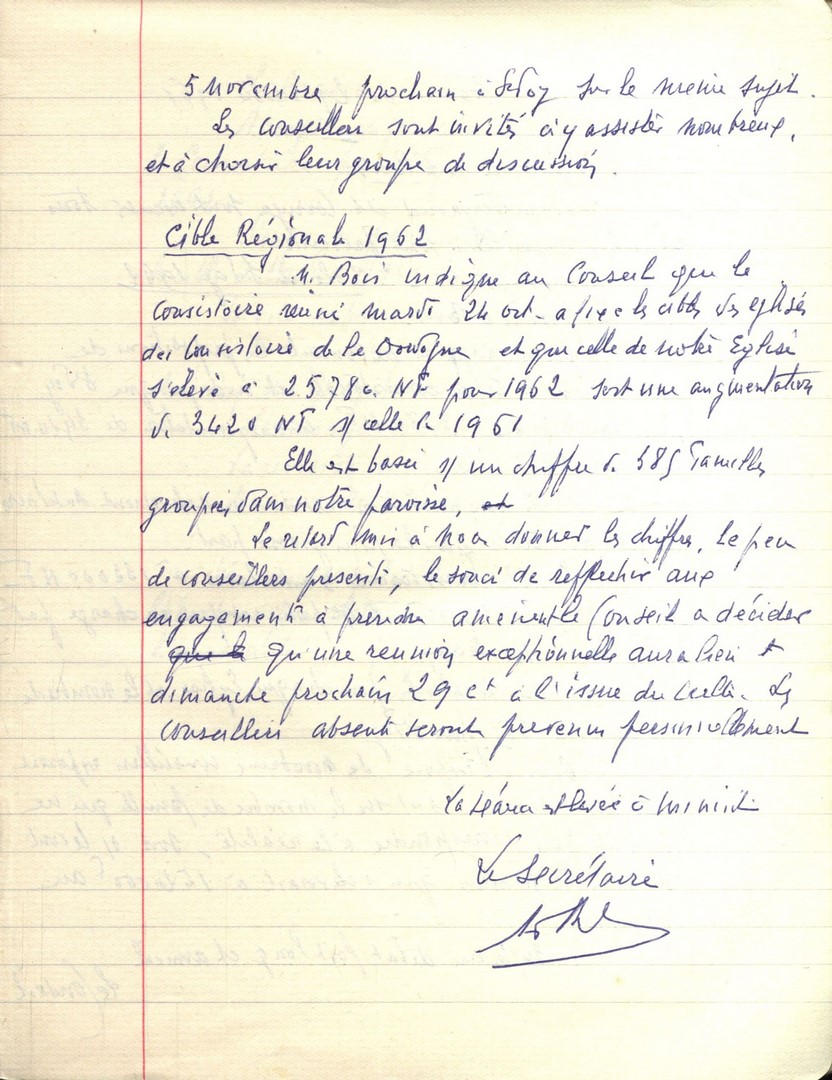 5 novembre prochain à Ste Foy sur le meme sujet.
Les Conseillers sont invités à y assister nombreux,
et à choisir leur groupe de discussion.
Cible Régionale 1962
M. Bois indique au Conseil que le
Consistoire réuni mardi 24 oct. a fixé les cibles des eglises
du Consistoire de la Dordogne et que celle de notre Eglise
s'élève à 2578 NF pour 1962 soit une augmentation
de 3420 NF s/ celle de 1961
Elle est basée s/ un chiffre de 385 familles
groupées dans notre paroisse, et
Le retard mis à nous donner les chiffres, le peu
de conseillers presents, le souci de reflechir aux
engagements à prendre amènent le Conseil a décider
qu'une reunion exceptionnelle aura lieu
dimanche prochain 29 ct à l'issue du Culte. Les
Conseillers absents seront prevenus personnellement
La séance est levée à minuit
Le Secrétaire